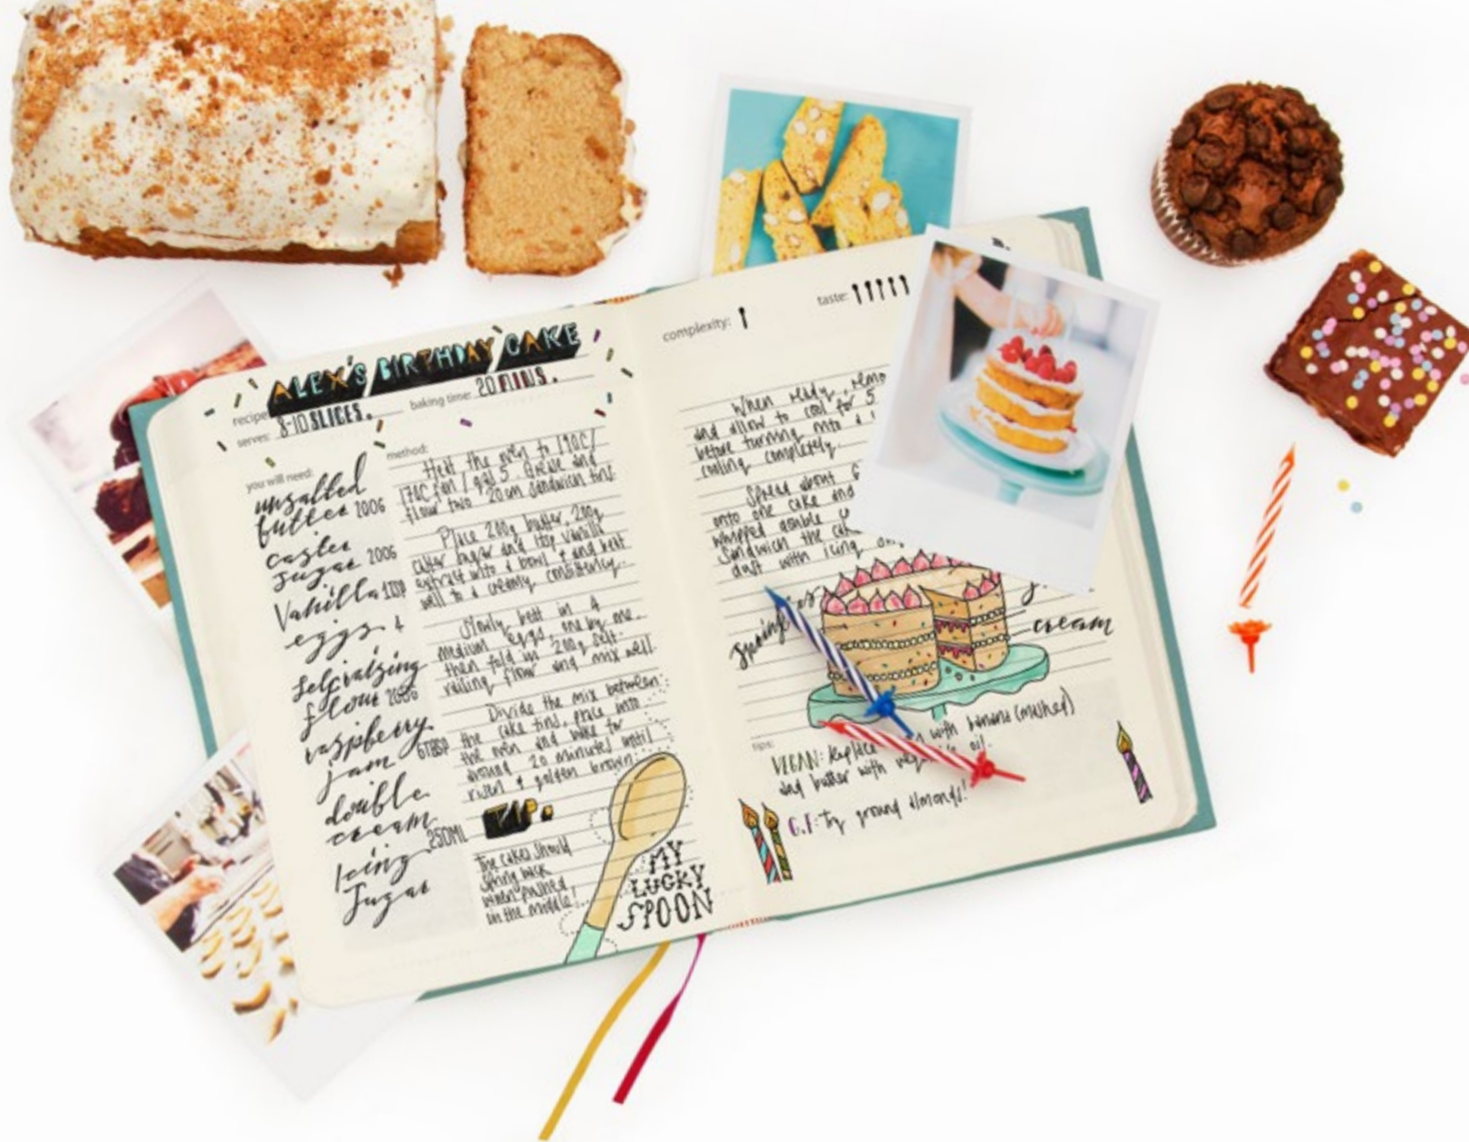 ALEX'S BIRTHDAY CAKE
recipe:
serves: 8-10 SLICES.
baking time: 20 MINS.
you will need:
unsalted
butter 200G
caster
sugar 200G
Vanilla 1TSP
eggs 4
selfraising
flour 200G
raspberry
jam 6TBSP
double
cream 250ML
Icing
Sugar
method:
Heat the oven to 190C/
170C fan / gas 5. Grease and
flour two 20cm sandwich tins.
Place 200g butter, 200g
caster sugar and 1tsp vanilla
extract into a bowl and beat
well to a creamy consistency.
Slowly beat in 4
medium eggs, one by one.
then fold in 200g self-
raising flour and mix well.
Divide the mix between
the cake tins, place into
the oven and bake for
around 20 minutes until
risen & golden brown.
TIP:
the cakes should
spring back
when pushed
in the middle!
MY
LUCKY
SPOON
complexity:
taste:
When ready, remo
and allow to cool for 5
before turning into a
cooling completely.
Spread about 6
onto one cake and
whipped double
Sandwich the cak
dust with icing
cream
tips:
VEGAN: Replace with banana (mashed)
and butter with oil.
G.F: Try ground almonds!